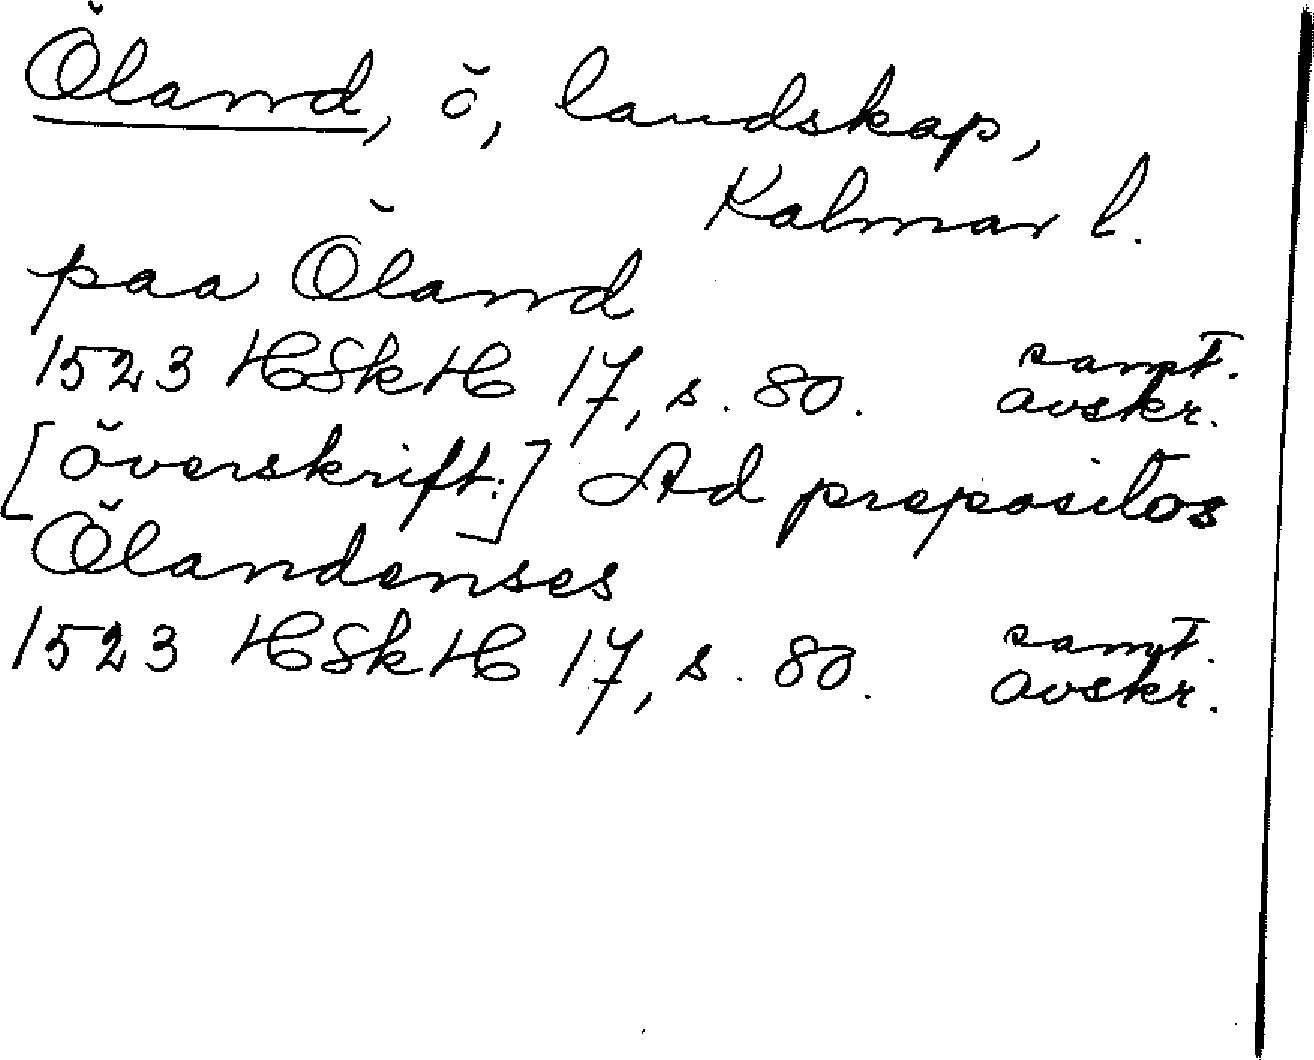 Öland, ö, landskap,
Kalmar l.
paa Öland
1523 HSkH 17, s. 80. samt. avskr.
[överskrift:] Ad prepositos
Ölandenses
1523 HSkH 17, s. 80. samt. avskr.